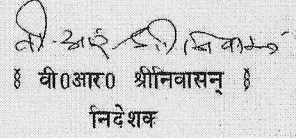 वी०आर० श्रीनिवासन्
निदेशक